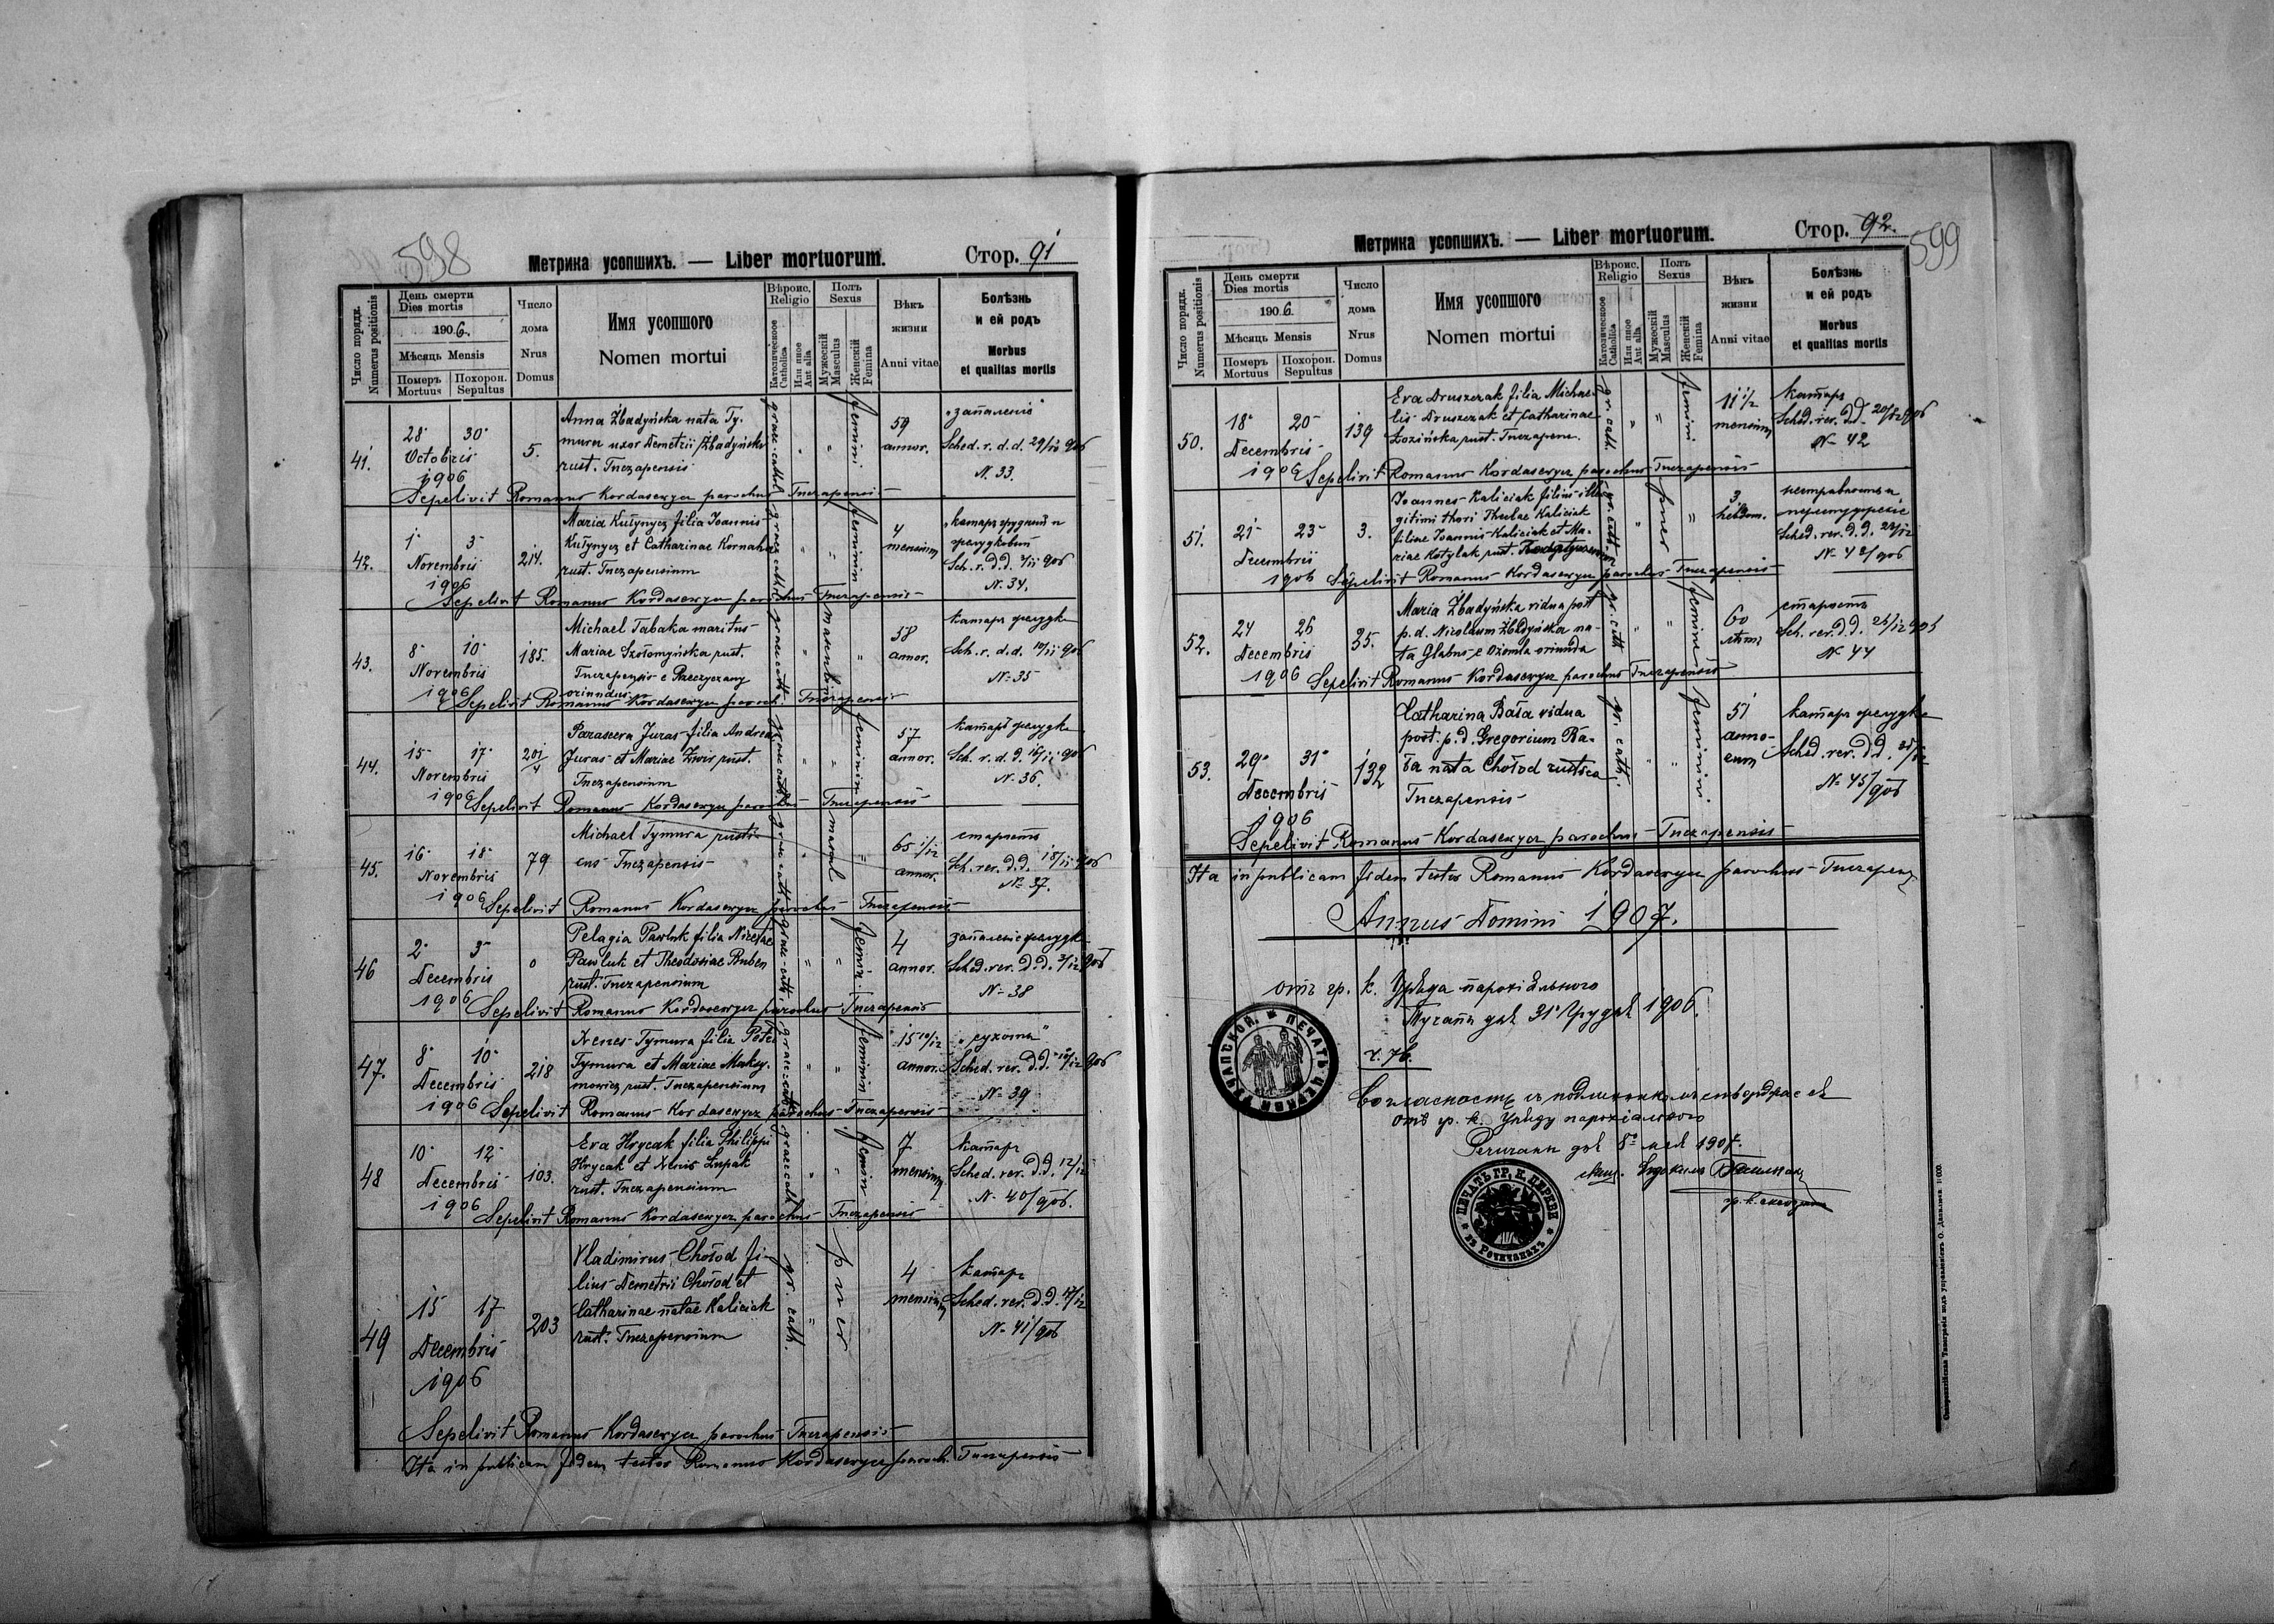 598
Метрика усопшихъ. — Liber mortuorum.
Стор. 91
Число порядк.
Numerus positionis
День смерти
Dies mortis
1906.
Мѣсяць Mensis
Померъ
Mortuus
Похорон.
Sepultus
Число
дома
Nrus
Domus
Имя усопшого
Nomen mortui
Вѣроис.
Religio
Католическое
Catholica
Или иное
Aut alia
Полъ
Sexus
Мужескій
Masculus
Женскій
Femina
Вѣкъ
жизни
Anni vitae
Болѣзнь
и ей родъ
Morbus
et qualitas mortis
41.
28 30
Octobris
1906
5.
Anna Żbadyńska nata Ty-
mura uxor Demetrii Żbadyński
rust. Tuczapensis
graec. cath.
femini
59
annor.
„запаленіє"
Sched. r. d. d. 906
N. 33.
Sepelivit Romanus Kordasewycz parochus Tuczapensis
42.
1 3
Novembris
1906
214.
Maria Kułynycz filia Joannis
Kułynycz et Catharinae Kornaha
rust. Tuczapensium
graec. cath.
feminin
4
mensium
„катаръ грудний и
желудковий
Sch. r. d. d. 906
N. 34.
Sepelivit Romanus Kordasewycz parochus Tuczapensis
43.
8 10
Novembris
1906
185.
Michael Tabaka maritus
Mariae Szołomyńska rust.
Tuczapensis e
oriundus
graec. cath.
masculi
38
annor.
катаръ желудка
Sch. r. d. d. 10/11 906
N. 35
Sepelivit Romanus Kordasewycz paroch. Tuczapensis
44.
15 17
Novembris
1906
201/4
Parascera Juras filia Andreae
Juras et Mariae Zwir rust.
Tuczapensium
graec. cath.
feminin
57
annor.
катаръ желудка
Sch. r. d. d. 16/11 906
N. 36.
Sepelivit Romanus Kordasewycz parochus Tuczapensis
45.
16 18
Novembris
1906
79
Michael Tymura rusti-
cus Tuczapensis
graec. cath.
mascul
65 1/12
annor.
старость
Sch. rer. d. d. 18/11 906
N. 37.
Sepelivit Romanus Kordasewycz parochus Tuczapensis
46
2 3
Decembris
1906
0
Pelagia Pawluk filia Nicetae
Pawluk et Theodosiae Ruben
rust. Tuczapensium
graec. cath.
femin.
4
annor.
запаленіє желудка
Sched. rer. d. d. 3/12 906
N. 38
Sepelivit Romanus Kordasewycz parochus Tuczapensis
47.
8 10
Decembris
1906
218
Xenes Tymura filia Petri
Tymura et Mariae Maksy-
mowicz rust. Tuczapensium
graec. cath.
feminin
15 10/12
annor.
„сухоты"
Sched. rer. d. d. 10/12 906
N. 39
Sepelivit Romanus Kordasewycz parochus Tuczapensis
48
10 12
Decembris
1906
103.
Eva Hrycak filia Philippi
Hrycak et Xenis Łupak
rust. Tuczapensium
graec. cath.
feminin
7
mensium
Катаръ
Sched. rer. d. d. 12/12
N. 40/906.
Sepelivit Romanus Kordasewycz parochus Tuczapensis
49
15 17
Decembris
1906
203
Vladimirus Chołod fi-
lius Demetrii Chołod et
Catharinae natae Kaliciak
rust. Tuczapensium
gr. cath.
puer
4
mensium
Катаръ
Sched. rer. d. d. 17/12
N. 41/906
Sepelivit Romanus Kordasewycz parochus Tuczapensis
Ita in publicam fidem testor Romanus Kordasewycz paroch. Tuczapensis
Метрика усопшихъ. — Liber mortuorum.
Стор. 92.
599
Число порядк.
Numerus positionis
День смерти
Dies mortis
1906.
Мѣсяць Mensis
Померъ
Mortuus
Похорон.
Sepultus
Число
дома
Nrus
Domus
Имя усопшого
Nomen mortui
Вѣроис.
Religio
Католическое
Catholica
Или иное
Aut alia
Полъ
Sexus
Мужескій
Masculus
Женскій
Femina
Вѣкъ
жизни
Anni vitae
Болѣзнь
и ей родъ
Morbus
et qualitas mortis
50.
18 20
Decembris
1906
139
Eva Druszczak filia Michae-
lis Druszczak et Catharinae
Łozińska rust. Tuczapens.
gr. cath.
femini
11 1/2
mensium
Катаръ
Sched. rer. d. d. 20/12 906
N. 42
Sepelivit Romanus Kordasewycz parochus Tuczapensis
51.
21 23
Decembris
1906
3.
Joannes Kaliciak filius ille-
gitimi thori Theclae Kaliciak
filiae Joannis Kaliciak et Ma-
riae Kotylak rust.
gr. cath.
puer
3
hebdom.
Sched. rer. d. d.
N. 43/906
Sepelivit Romanus Kordasewycz parochus Tuczapensis
52.
24 26
Decembris
1906
35.
Maria Żbadyńska vidua post
p. d. Nicolaum Żbadyński na-
ta Glabus e Ożomla oriunda
gr. cath
feminini
60
старость
Sch. rer. d. d. 26/12 906
N. 44
Sepelivit Romanus Kordasewycz parochus Tuczapensis
53.
29 31
Decembris
1906
132
Catharina Bała vidua
post. p. d. Gregorium Ba-
ła nata Chołod rustica
Tuczapensis
gr. cath.
feminini
51
anno-
rum
катаръ желудка
Sched. rer. d. d. 31/12
N. 45/906
Sepelivit Romanus Kordasewycz parochus Tuczapensis
Ita in publicam fidem testor Romanus Kordasewycz parochus Tuczapens
Annus Domini 1907.
отъ гр. к. Уряда парохіяльного
Тучапы дня 31 Грудня 1906.
ч. 76.
Согласность съ подлинникомъ стверджає ся
отъ гр. к. Уряду парохіяльного
дня 8 мая 1907.
ПЕЧАТЬ ГР. К. ЦЕРКВИ
Октавійская Типографія подъ управленіемъ О. Данилюка 1000.